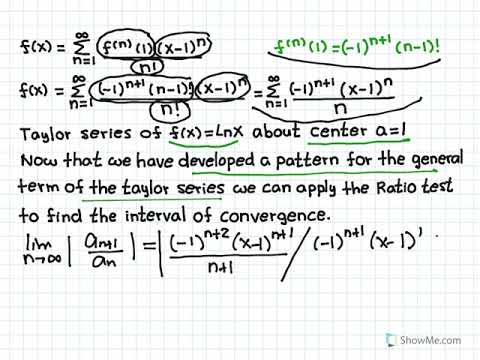 f(x) = ∞ Σ n=1 f⁽ⁿ⁾(1)(x-1)ⁿ / n!
f⁽ⁿ⁾(1) = (-1)ⁿ⁺¹ (n-1)!
f(x) = ∞ Σ n=1 (-1)ⁿ⁺¹ (n-1)! (x-1)ⁿ / n! = ∞ Σ n=1 (-1)ⁿ⁺¹ (x-1)ⁿ / n
Taylor series of f(x)=Lnx about center a=1
Now that we have developed a pattern for the general
term of the taylor series we can apply the Ratio test
to find the interval of convergence.
lim n→∞ | aₙ₊₁ / aₙ | = | (-1)ⁿ⁺² (x-1)ⁿ⁺¹ / n+1 / (-1)ⁿ⁺¹ (x-1)'
ShowMe.com